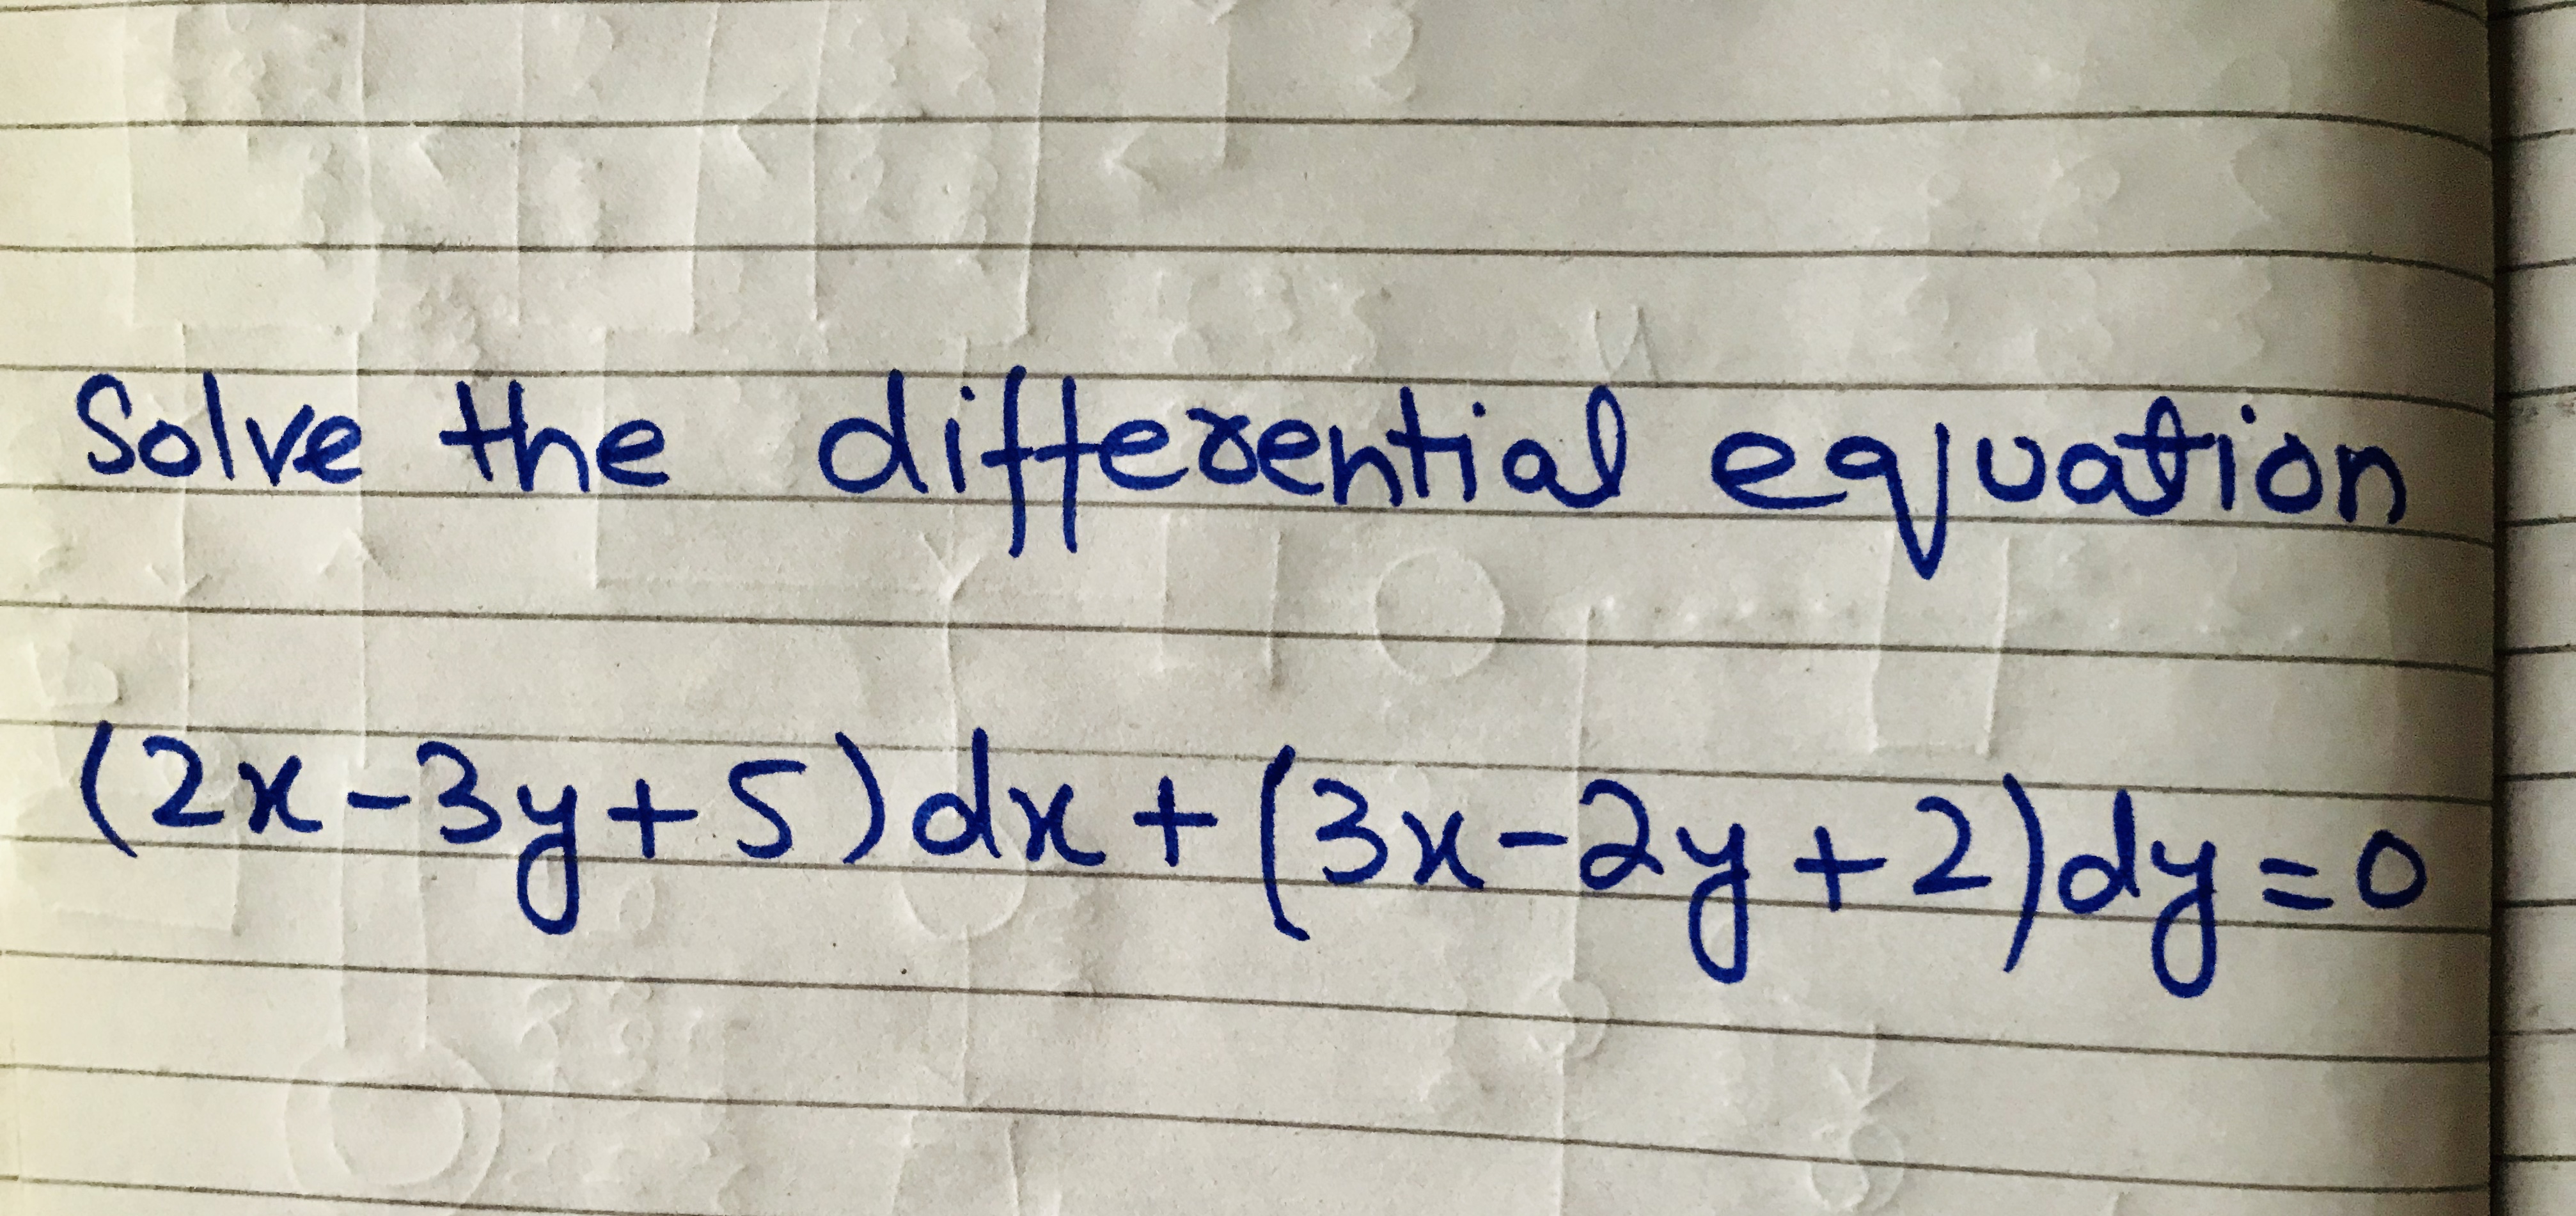 Solve the differential equation
(2x-3y+5)dx+(3x-2y+2)dy=0